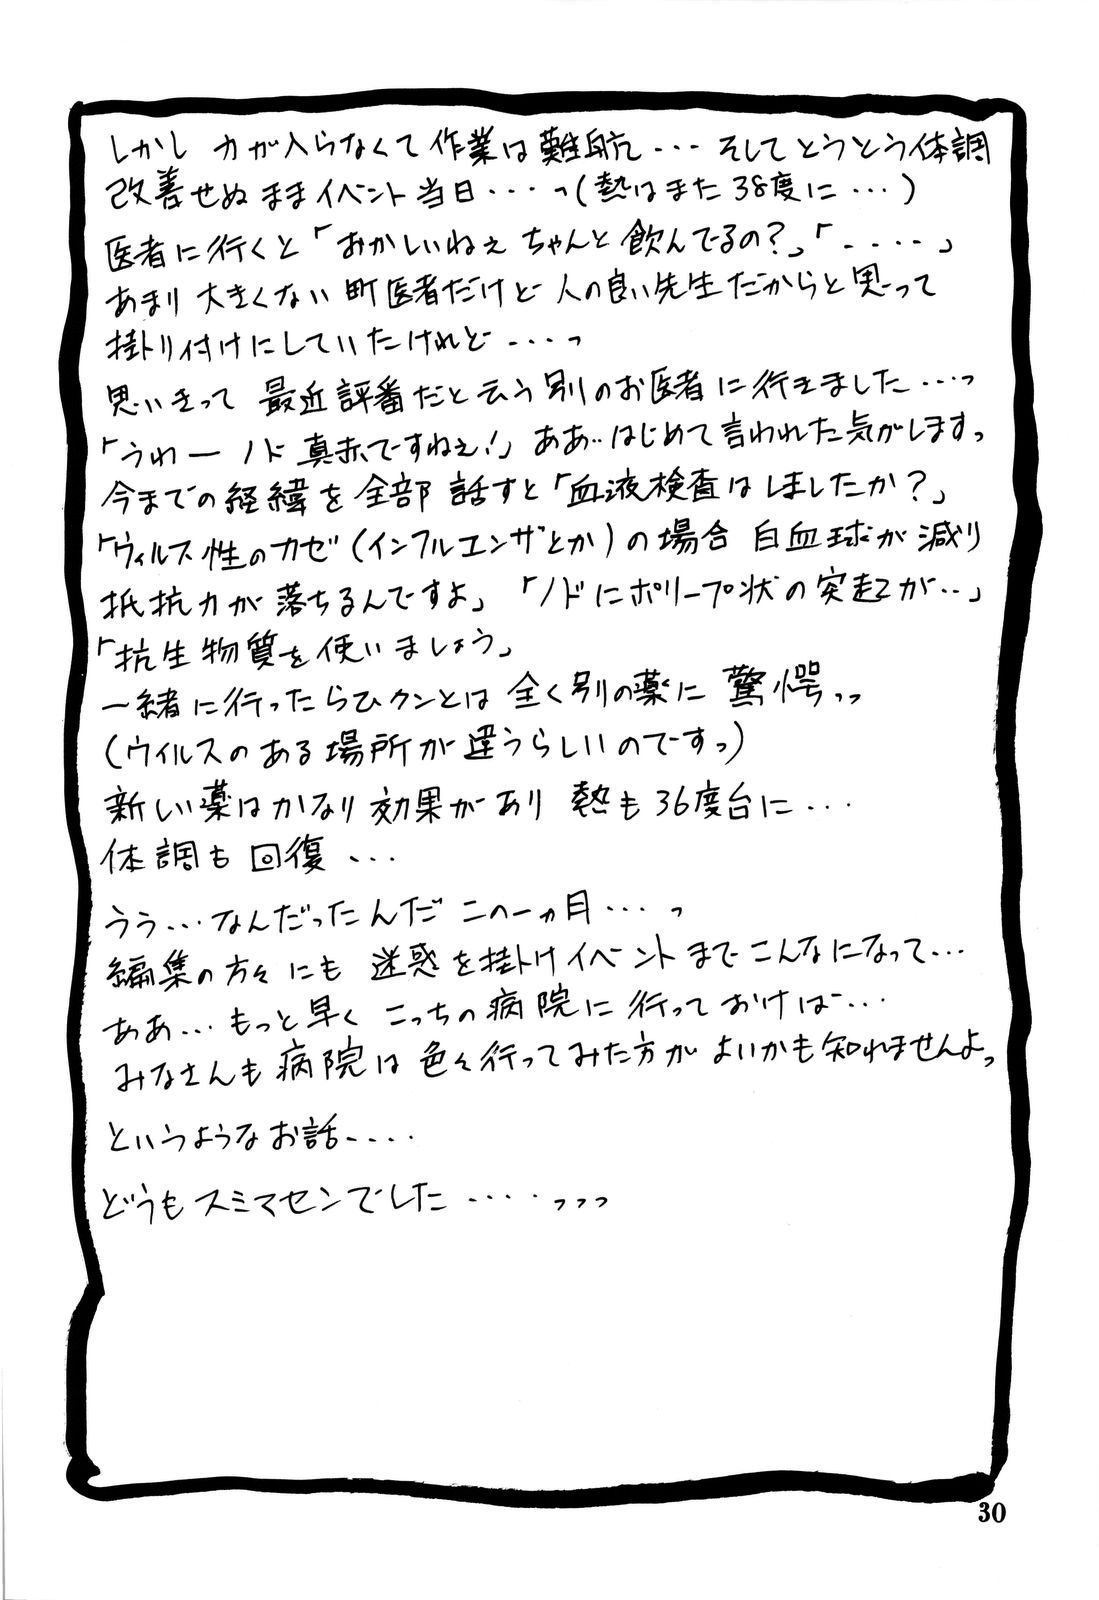 しかし 力が入らなくて作業は難航・・・ そしてとうとう体調
改善せぬ ままイベント当日・・・っ(熱はまた38度に・・・)
医者に行くと「おかしいねぇ ちゃんと飲んでるの?」「・・・・」
あまり 大きくない 町医者だけど 人の良い先生だからと思って
掛トリ付けにしていたけれど・・・っ
思いきって 最近評番だと云う別のお医者に行きました・・・っ
「うわー ノド 真赤ですねぇ!」ああ‥はじめて言われた気がしますっ
今までの経緯を全部 話すと「血液検査はしましたか?」
「ウィルス性のカゼ(インフルエンザとか)の場合 白血球が減り
抵抗力が落ちるんですよ」「ノドにポリープ状の突起が‥」
「抗生物質を使いましょう」
一緒に行ったらひクンとは 全く別の薬に 驚愕っっ
(ウィルスのある場所が違うらしいのですっ)
新しい薬はかなり効果があり 熱も36度台に・・・
体調も回復・・・
うう・・・なんだったんだ この一ヵ月・・・っ
編集の方々にも 迷惑を掛けイベントまでこんなになって・・・
ああ・・・もっと早く こっちの病院に行っておけば・・・
みなさんも病院は色々行ってみた方がよいかも知れませんよっ
というようなお話・・・・
どうもスミマセンでした・・・・っっっ
30